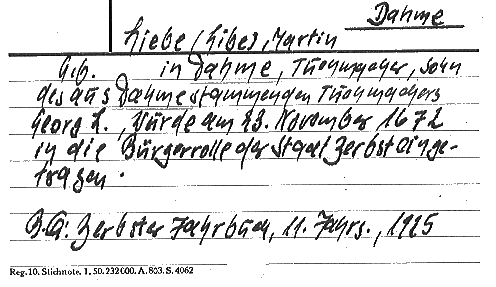 Dahme
Liebe (Libe), Martin
Geb. in Dahme, Tuchmacher, Sohn
des aus Dahme stammenden Tuchmachers
Georg L., wurde am 23. November 1672
in die Bürgerrolle der Stadt Zerbst einge-
tragen.
B.Q: Zerbster Jahrbuch, 11. Jahrg., 1925
Reg. 10. Stichnote. 1. 50. 232000. A. 803. S. 4062